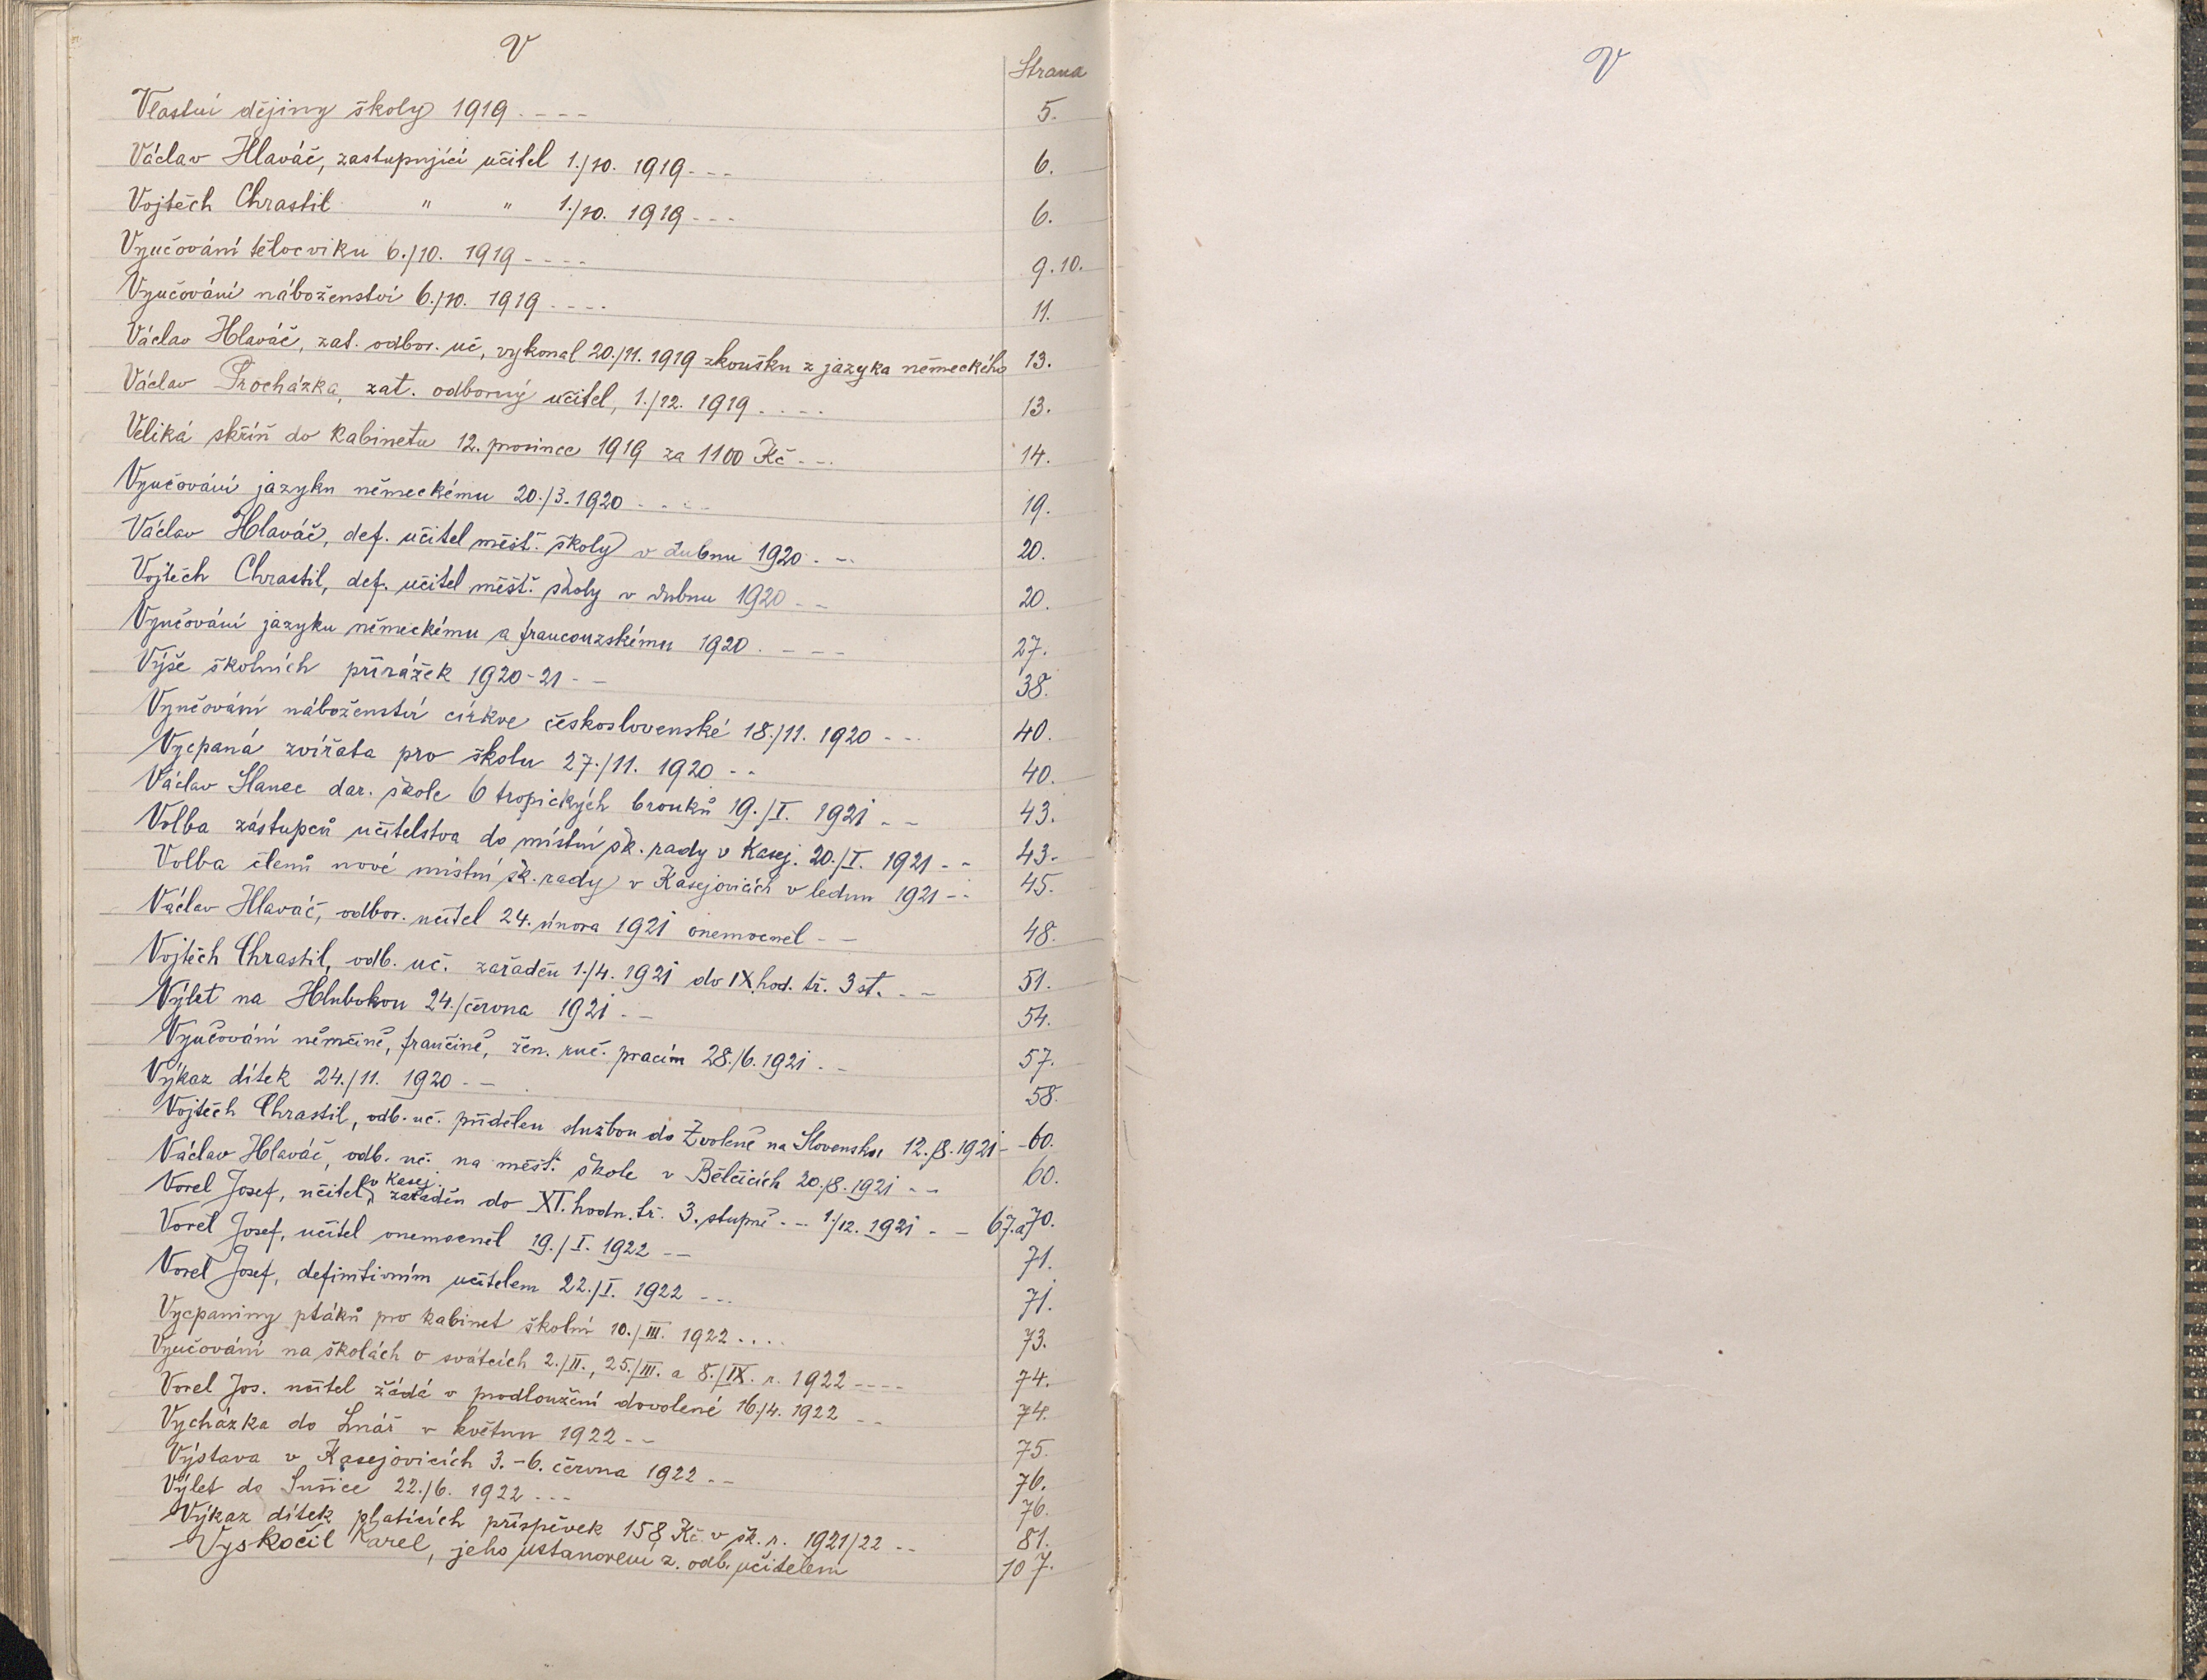 V
Strana
Vlastní dějiny školy 1919 - - - - 5.
Václav Hlaváč, zastupující učitel 1./10. 1919 - - - 6.
Vojtěch Chrastil " " 1./10. 1919 - - - 6.
Vyučování tělocviku 6./10. 1919 - - - - 9. 10.
Vyučování náboženství 6./10. 1919 - - - - 11.
Václav Hlaváč, zat. odbor. uč, vykonal 20./11. 1919 zkoušku z jazyka německého 13.
Václav Procházka, zat. odborný učitel, 1./12. 1919 - - - - 13.
Veliká skříň do kabinetu 12. prosince 1919 za 1100 Kč - - - 14.
Vyučování jazyku německému 20./3. 1920 - - - - 19.
Václav Hlaváč, def. učitel měšť. školy v dubnu 1920 - - - 20.
Vojtěch Chrastil, def. učitel měšť. školy v dubnu 1920 - - 20.
Vyučování jazyku německému a francouzskému 1920 - - - - 27.
Výše školních přirážek 1920-21 - - 38.
Vyučování náboženství církve československé 18./11. 1920 - - - 40.
Vycpaná zvířata pro školu 27./11. 1920 - - 40.
Václav Slanec dar. škole 6 tropických brouků 19./I. 1921 - - 43.
Volba zástupců učitelstva do místní šk. rady v Kasej. 20./I. 1921 - - 43.
Volba členů nové místní šk. rady v Kasejovicích v lednu 1921 - - 45.
Václav Hlaváč, odbor. učitel 24. února 1921 onemocněl - - 48.
Vojtěch Chrastil, odb. uč. zařaděn 1./4. 1921 do IX. hod. tř. 3 st. - - 51.
Výlet na Hlubokou 24./června 1921 - - 54.
Vyučování němčině, frančině, žen. ruč. pracím 28./6. 1921 - - 57.
Výkaz dítek 24./11. 1920 - - 58.
Vojtěch Chrastil, odb. uč. přidělen službou do Zvoleně na Slovensku 12./8. 1921 - - 60.
Václav Hlaváč, odb. uč. na měšť. škole v Bělčicích 20./8. 1921 - - 60.
Vorel Josef, učitel v Kasej. zařaděn do XI. hodn. tř. 3. stupně - - 1./12. 1921 - - 67. a 70.
Vorel Josef, učitel onemocněl 19./I. 1922 - - 71.
Vorel Josef, definitivním učitelem 22./I. 1922 - - - 71.
Vycpaniny ptáků pro kabinet školní 10./III. 1922 . . . . 73.
Vyučování na školách o svátcích 2./II., 25./III. a 8./IX. r. 1922 - - - - 74.
Vorel Jos. učitel žádá o prodloužení dovolené 16./4. 1922 - - 74.
Vycházka do Lnář v květnu 1922 - - 75.
Výstava v Kasejovicích 3.-6. června 1922 - - 76.
Výlet do Sušice 22./6. 1922 - - - 76.
Výkaz dítek platících příspěvek 158 Kč v šk. r. 1921/22 - - 81.
Vyskočil Karel, jeho ustanovení z. odb. učitelem 107.
V